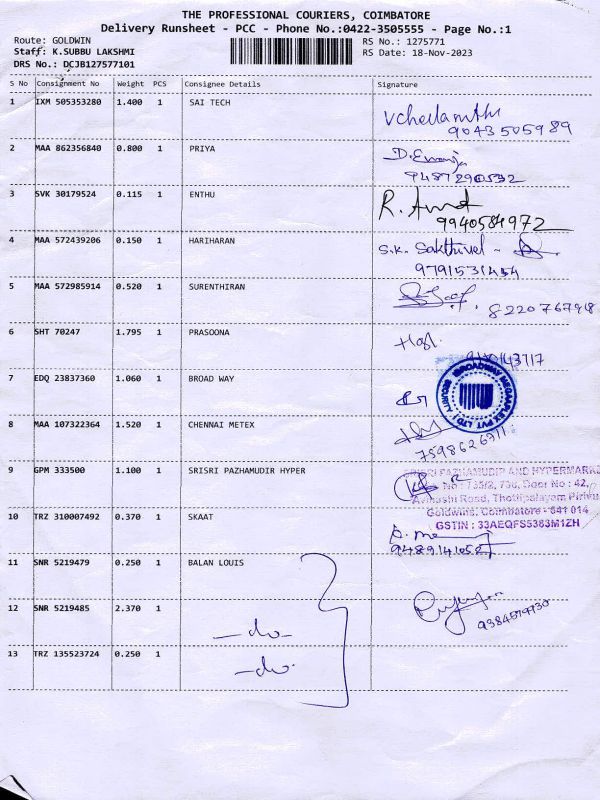 THE PROFESSIONAL COURIERS, COIMBATORE
Delivery Runsheet - PCC - Phone No.:0422-3505555 - Page No.:1
Route: GOLDWIN
RS No.: 1275771
Staff: K.SUBBU LAKSHMI
RS Date: 18-Nov-2023
DRS No.: DCJB127577101
S No Consignment No Weight PCS Consignee Details Signature
1 IXM 505353280 1.400 1 SAI TECH
9043505989
2 MAA 862356840 0.800 1 PRIYA
9487290532
3 SVK 30179524 0.115 1 ENTHU R.
9940584972
4 MAA 572439206 0.150 1 HARIHARAN S.K. Sakthivel -
9791531454
5 MAA 572985914 0.520 1 SURENTHIRAN 8220767918
6 SHT 70247 1.795 1 PRASOONA
7 EDQ 23837360 1.060 1 BROAD WAY
BROADWAY MEGAAPLEX PVT LTD SECURITY
8 MAA 107322364 1.520 1 CHENNAI METEX
7598626911
9 GPM 333500 1.100 1 SRISRI PAZHAMUDIR HYPER
SRISRI PAZHAMUDIR AND HYPERMARK
Door No : 42,
Avinashi Road, Thottipalayam Pirivu
Goldwins, Coimbatore - 641 014
GSTIN : 33AEQFS5383M1ZH
10 TRZ 310007492 0.370 1 SKAAT
11 SNR 5219479 0.250 1 BALAN LOUIS
9384579730
12 SNR 5219485 2.370 1
-do-
13 TRZ 135523724 0.250 1
-do-